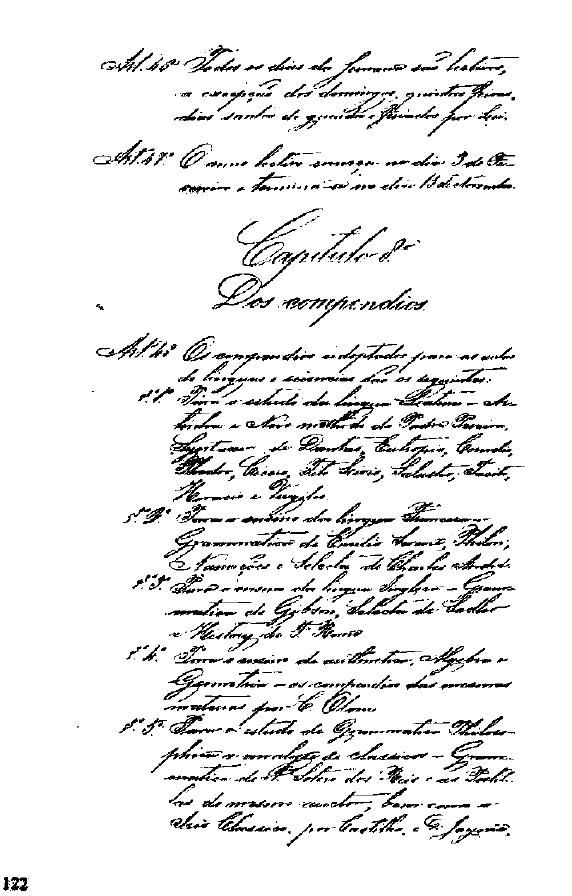 Art. 46º Todos os dias da semana são lectivos,
a excepção dos domingos, quintas feiras,
dias santos de guarda e feriados por Lei.
Art. 47º O anno lectivo começa no dia 3 de Fe-
vereiro e termina-se no dia 15 de
Capitulo 8º
Dos compendios
Art. 48º Os compendios adoptados para as aulas
de linguas e sciencias são os seguintes:
§ 1º Para o estudo da lingua Latina - Ar-
e Novo methodo do Padre Pereira,
Syntaxe de Dantas, Eutropio, Cornelio,
Phedro, Cicero, Tito Livio, Salustio, Tacito,
Horacio e Virgilio
§ 2º Para o ensino da lingua Franceza -
Grammatica de Emilio
Narrações e Selecta de Charles André.
§ 3º Para o ensino da lingua Ingleza - Gram-
matica de Gibson, Selecta de Sadler
e History de
§ 4º Para o ensino de arithmetica, Algebra e
Geometria - os compendios das mesmas
materias por C. Ottoni
§ 5º Para o estudo de Grammatica Philoso-
phica e analyse de classicos - Gram-
matica de F. Sotero dos Reis e as Postil-
las do mesmo auctor, bem como o
Iris Classico, por Castilho, e
122